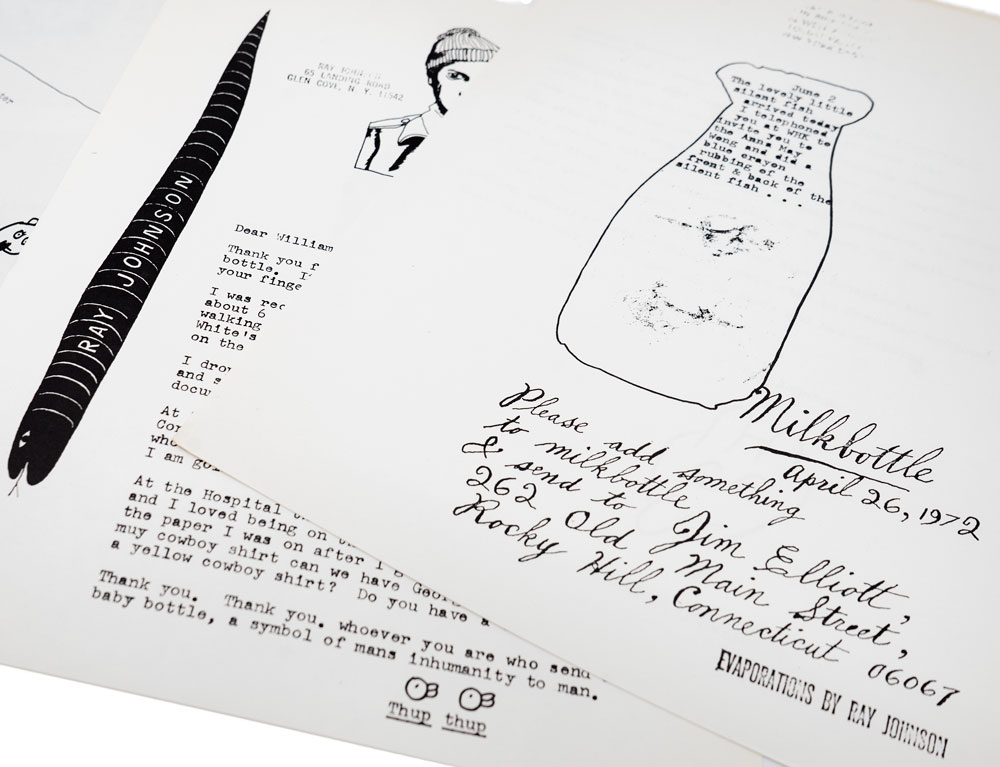 RAY JOHNSON
RAY JOHNSON
65 LANDING ROAD
GLEN COVE, N. Y. 11542
Dear William
Thank you f
bottle. I'
your finge
I was rec
about 6
walking
White's
on the
I drov
and s
docu
At
Con
who
I am goi
At the Hospital t
and I loved being on th
the paper I was on after I g
muy cowboy shirt can we have Georg
a yellow cowboy shirt? Do you have a
Thank you. Thank you. whoever you are who send
baby bottle, a symbol of mans inhumanity to man.
Thup thup
June 2
The lovely little
silent fish
arrived today
I telephoned
you at WHK to
invite you to
the Anna May
Wong and did a
blue crayon
rubbing of the
front & back of the
silent fish . . . .
Milkbottle
april 26, 1972
Please add something
to milkbottle
& send to Jim Elliott,
262 Old Main Street,
Rocky Hill, Connecticut 06067
EVAPORATIONS BY RAY JOHNSON